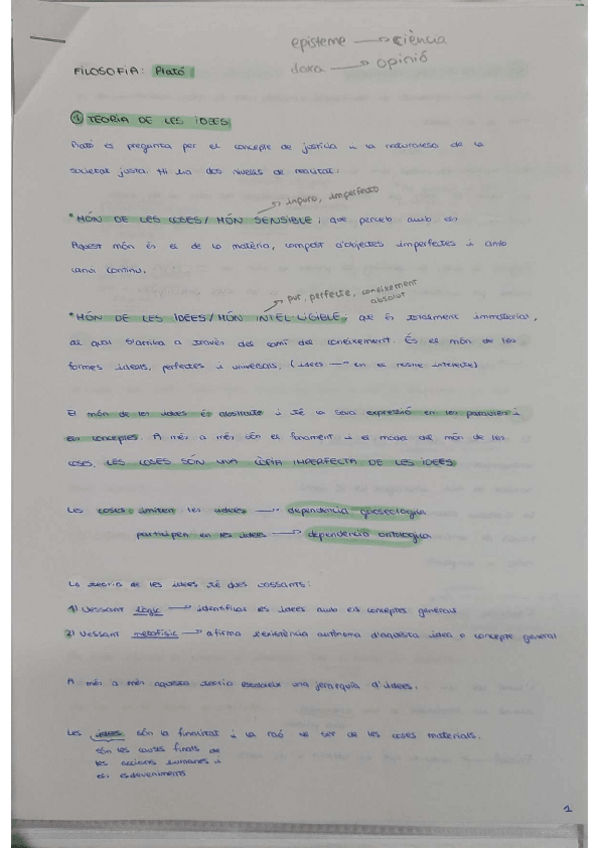 episteme → ciència
doxa → opinió
FILOSOFIA: Plató
1 TEORIA DE LES IDEES
Plató es pregunta per el concepte de justícia i la naturalesa de la
societat justa. Hi ha dos nivells de realitat:
→ impuro, imperfecto
* MÓN DE LES COSES / MÓN SENSIBLE; que percep amb els
Aquest món és el de la matèria, compost d'objectes imperfectes i amb
canvi continu.
→ pur, perfecte, coneixement
absolut
* MÓN DE LES IDEES / MÓN INTEL·LIGIBLE; que és totalment immaterial,
al qual s'arriba a través del camí del coneixement. És el món de les
formes ideals, perfectes i universals, (idees → en el resme intelecte)
El món de les idees és abstracte i té la seva expressió en les paraules i
els conceptes. A més a més són el fonament i el model del món de les
coses. LES COSES SÓN UNA CÒPIA IMPERFECTA DE LES IDEES
Les coses imiten les idees → dependència gnoseològica
participen en les idees → dependència ontològica
La teoria de les idees té dues vessants:
1) Vessant lògic → identificar les idees amb els conceptes generals
2) Vessant metafísic → afirma l'existència autònoma d'aquesta idea o concepte general
A més a més aquesta teoria estableix una jerarquia d'idees.
Les idees són la finalitat i la raó de ser de les coses materials.
són les causes finals de
les accions humanes i
els esdeveniments
1